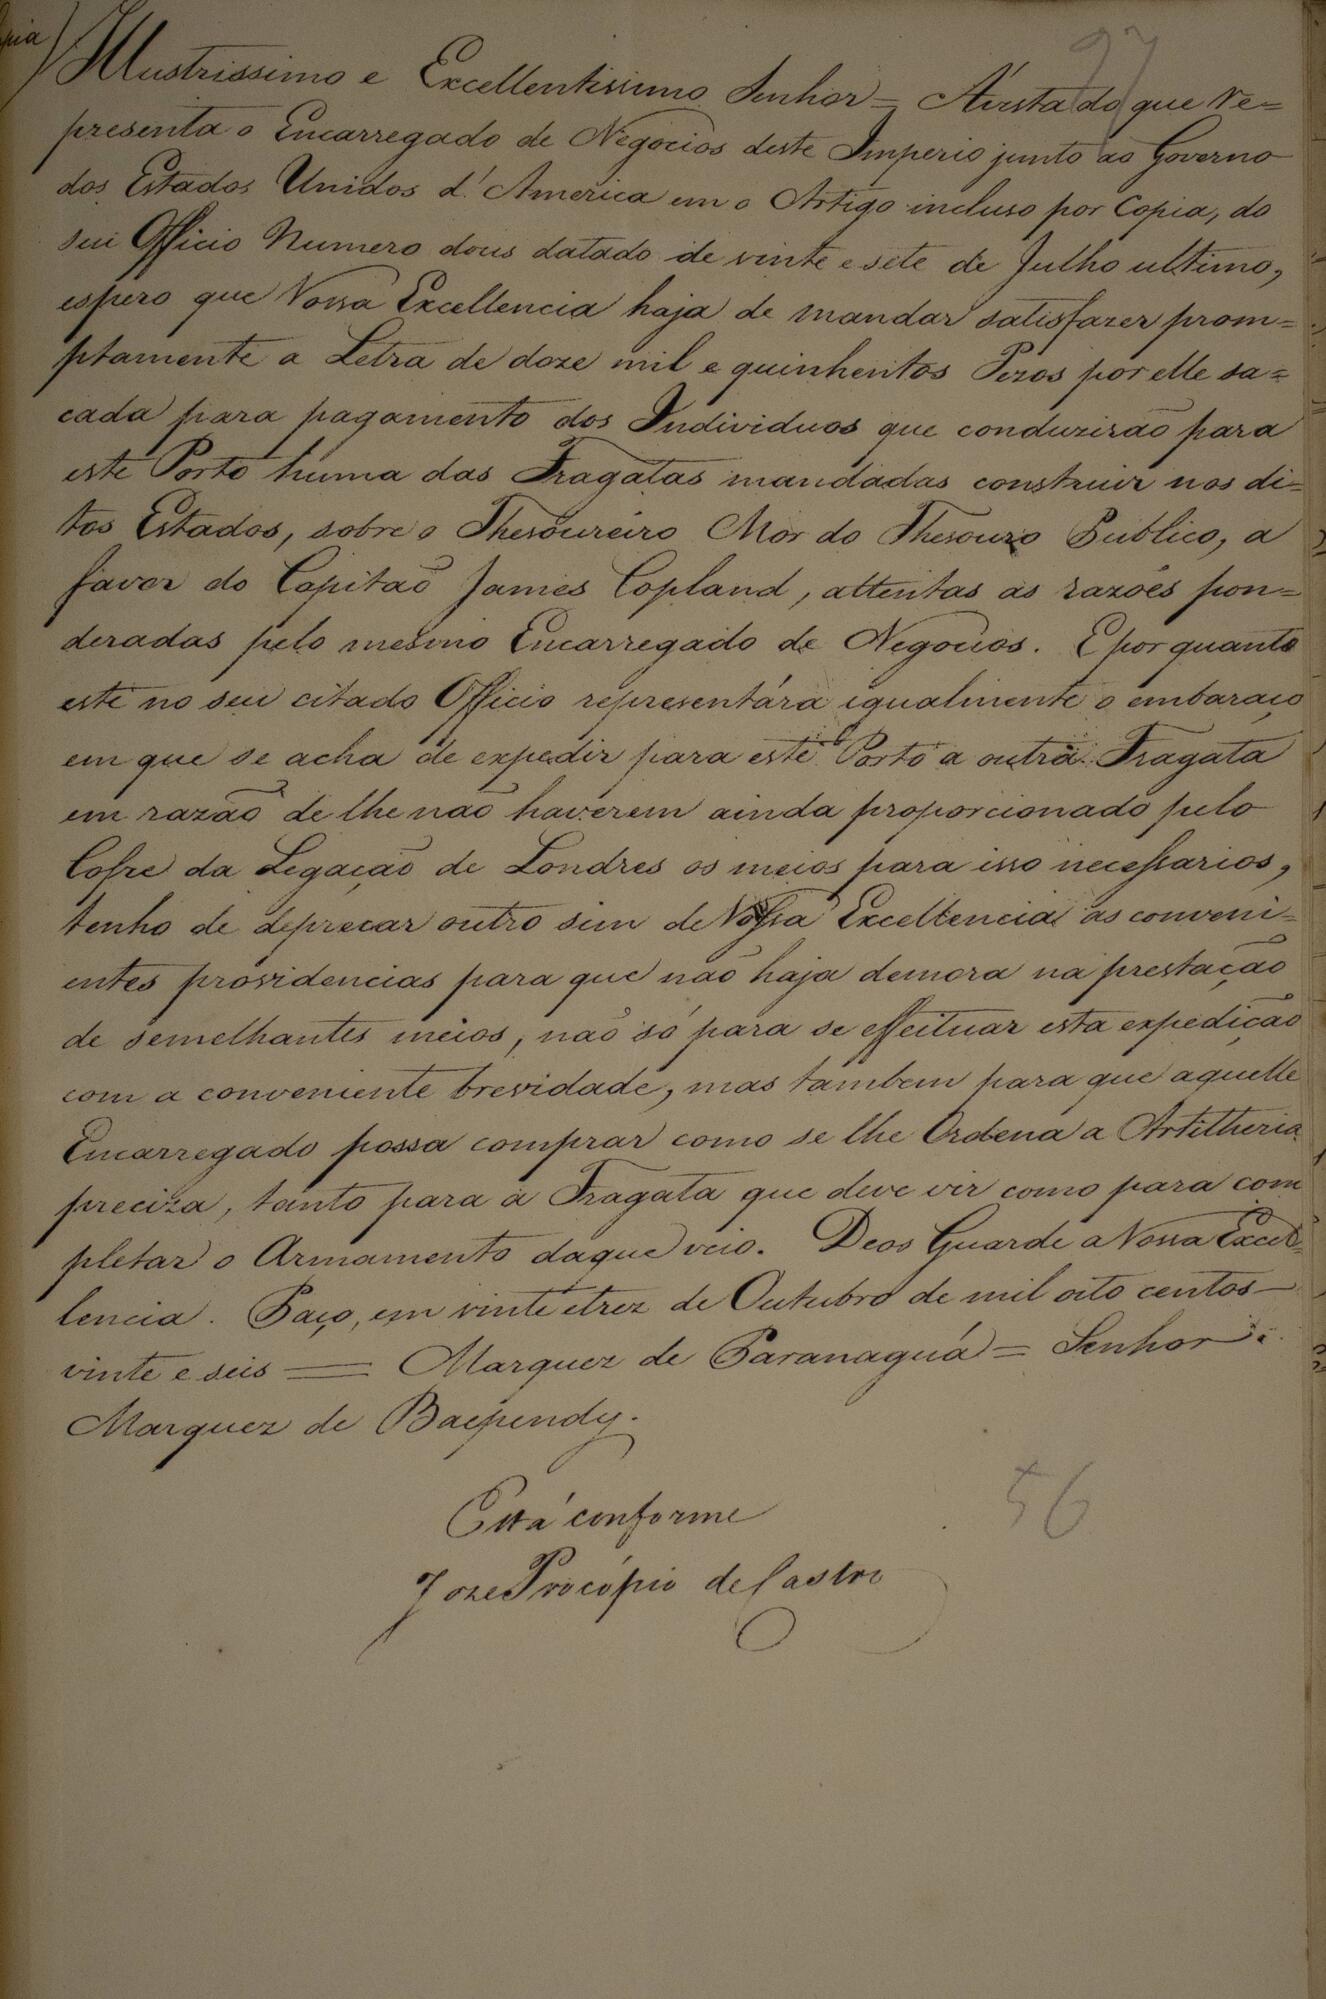 pia)
97
Illustrissimo e Excellentissimo Senhor = Á vista do que re=
presenta o Encarregado de Negocios deste Imperio junto ao Governo
dos Estados Unidos d'America em o Artigo incluso por Copia, do
seu Officio Numero dous datado de vinte e sete de Julho ultimo,
espero que Vossa Excellencia haja de mandar satisfazer prom=
ptamente a Letra de doze mil e quinhentos Pezos por elle sa=
cada para pagamento dos Individuos que conduzirão para
este Porto huma das Fragatas mandadas construir nos di=
tos Estados, sobre o Thesoureiro Mór do Thesouro Publico, a
favor do Capitão James Copland, attentas as razões pon=
deradas pelo mesmo Encarregado de Negocios. E por quanto
este no seu citado Officio representára igualmente o embaraço
em que se acha de expedir para este Porto a outra Fragata
em razão de lhe não haverem ainda proporcionado pelo
Cofre da Legação de Londres os meios para isso necessarios,
tenho de deprecar outro sim de Vossa Excellencia as conveni=
entes providencias para que não haja demora na prestação
de semelhantes meios, não só para se effeituar esta expedição
com a conveniente brevidade, mas tambem para que aquelle
Encarregado possa comprar como se lhe Ordena a Artilheria
preciza, tanto para a Fragata que deve vir como para com
pletar o Armamento da que veio. Deos Guarde a Vossa Excel=
lencia. Paço, em vinte e trez de Outubro de mil oito centos
vinte e seis = Marquez de Paranaguá = Senhor
Marquez de Baependy.
Está conforme
56
Joze Procópio de Castro